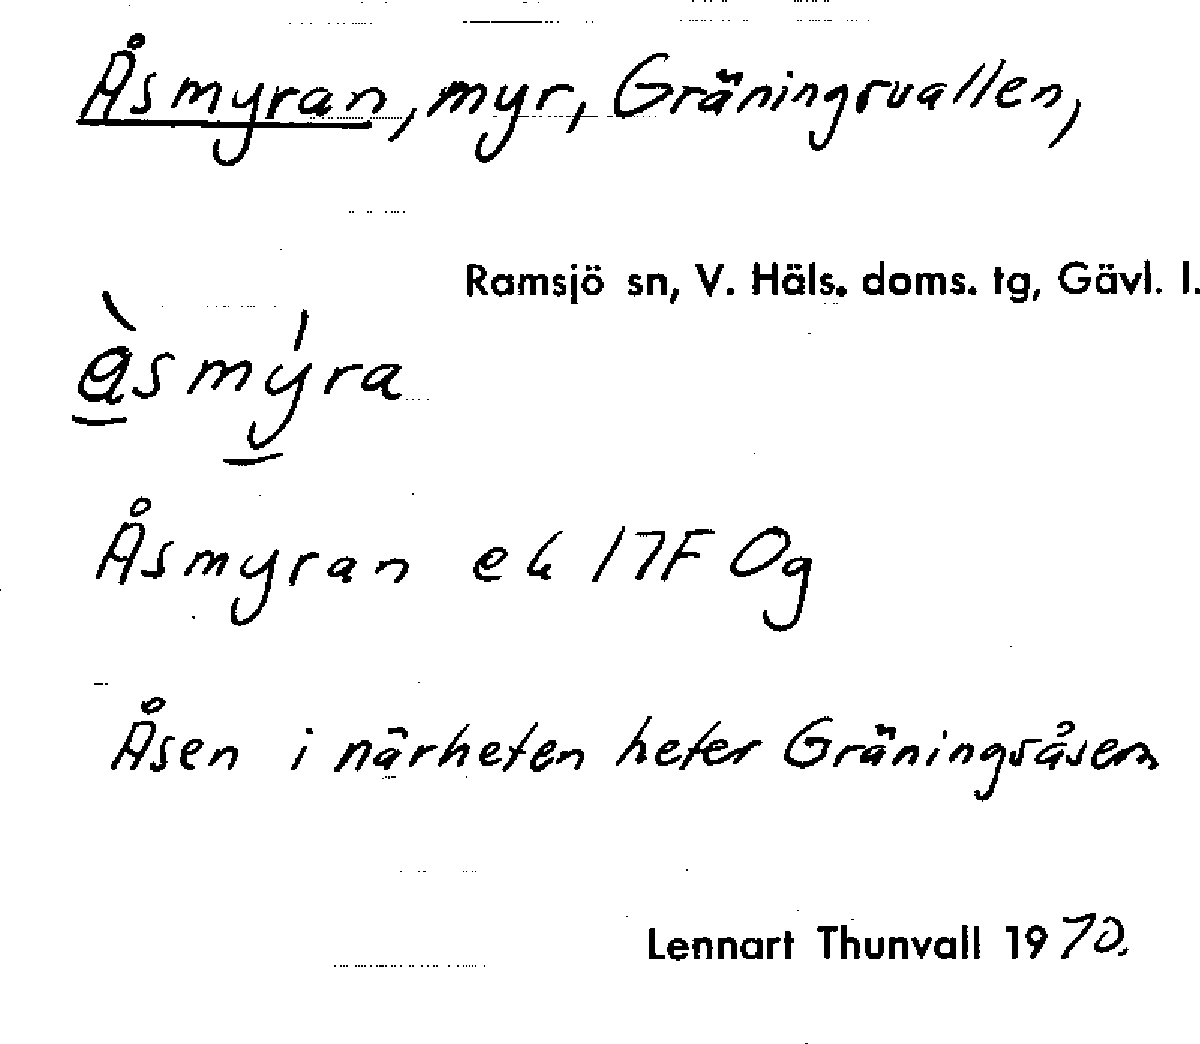 Åsmyran, myr, Gräningsvallen,
Ramsjö sn, V. Häls. doms. tg, Gävl. l.
åsmýra
Åsmyran ek 17F Og
Åsen i närheten heter Gräningsåsen
Lennart Thunvall 1970.